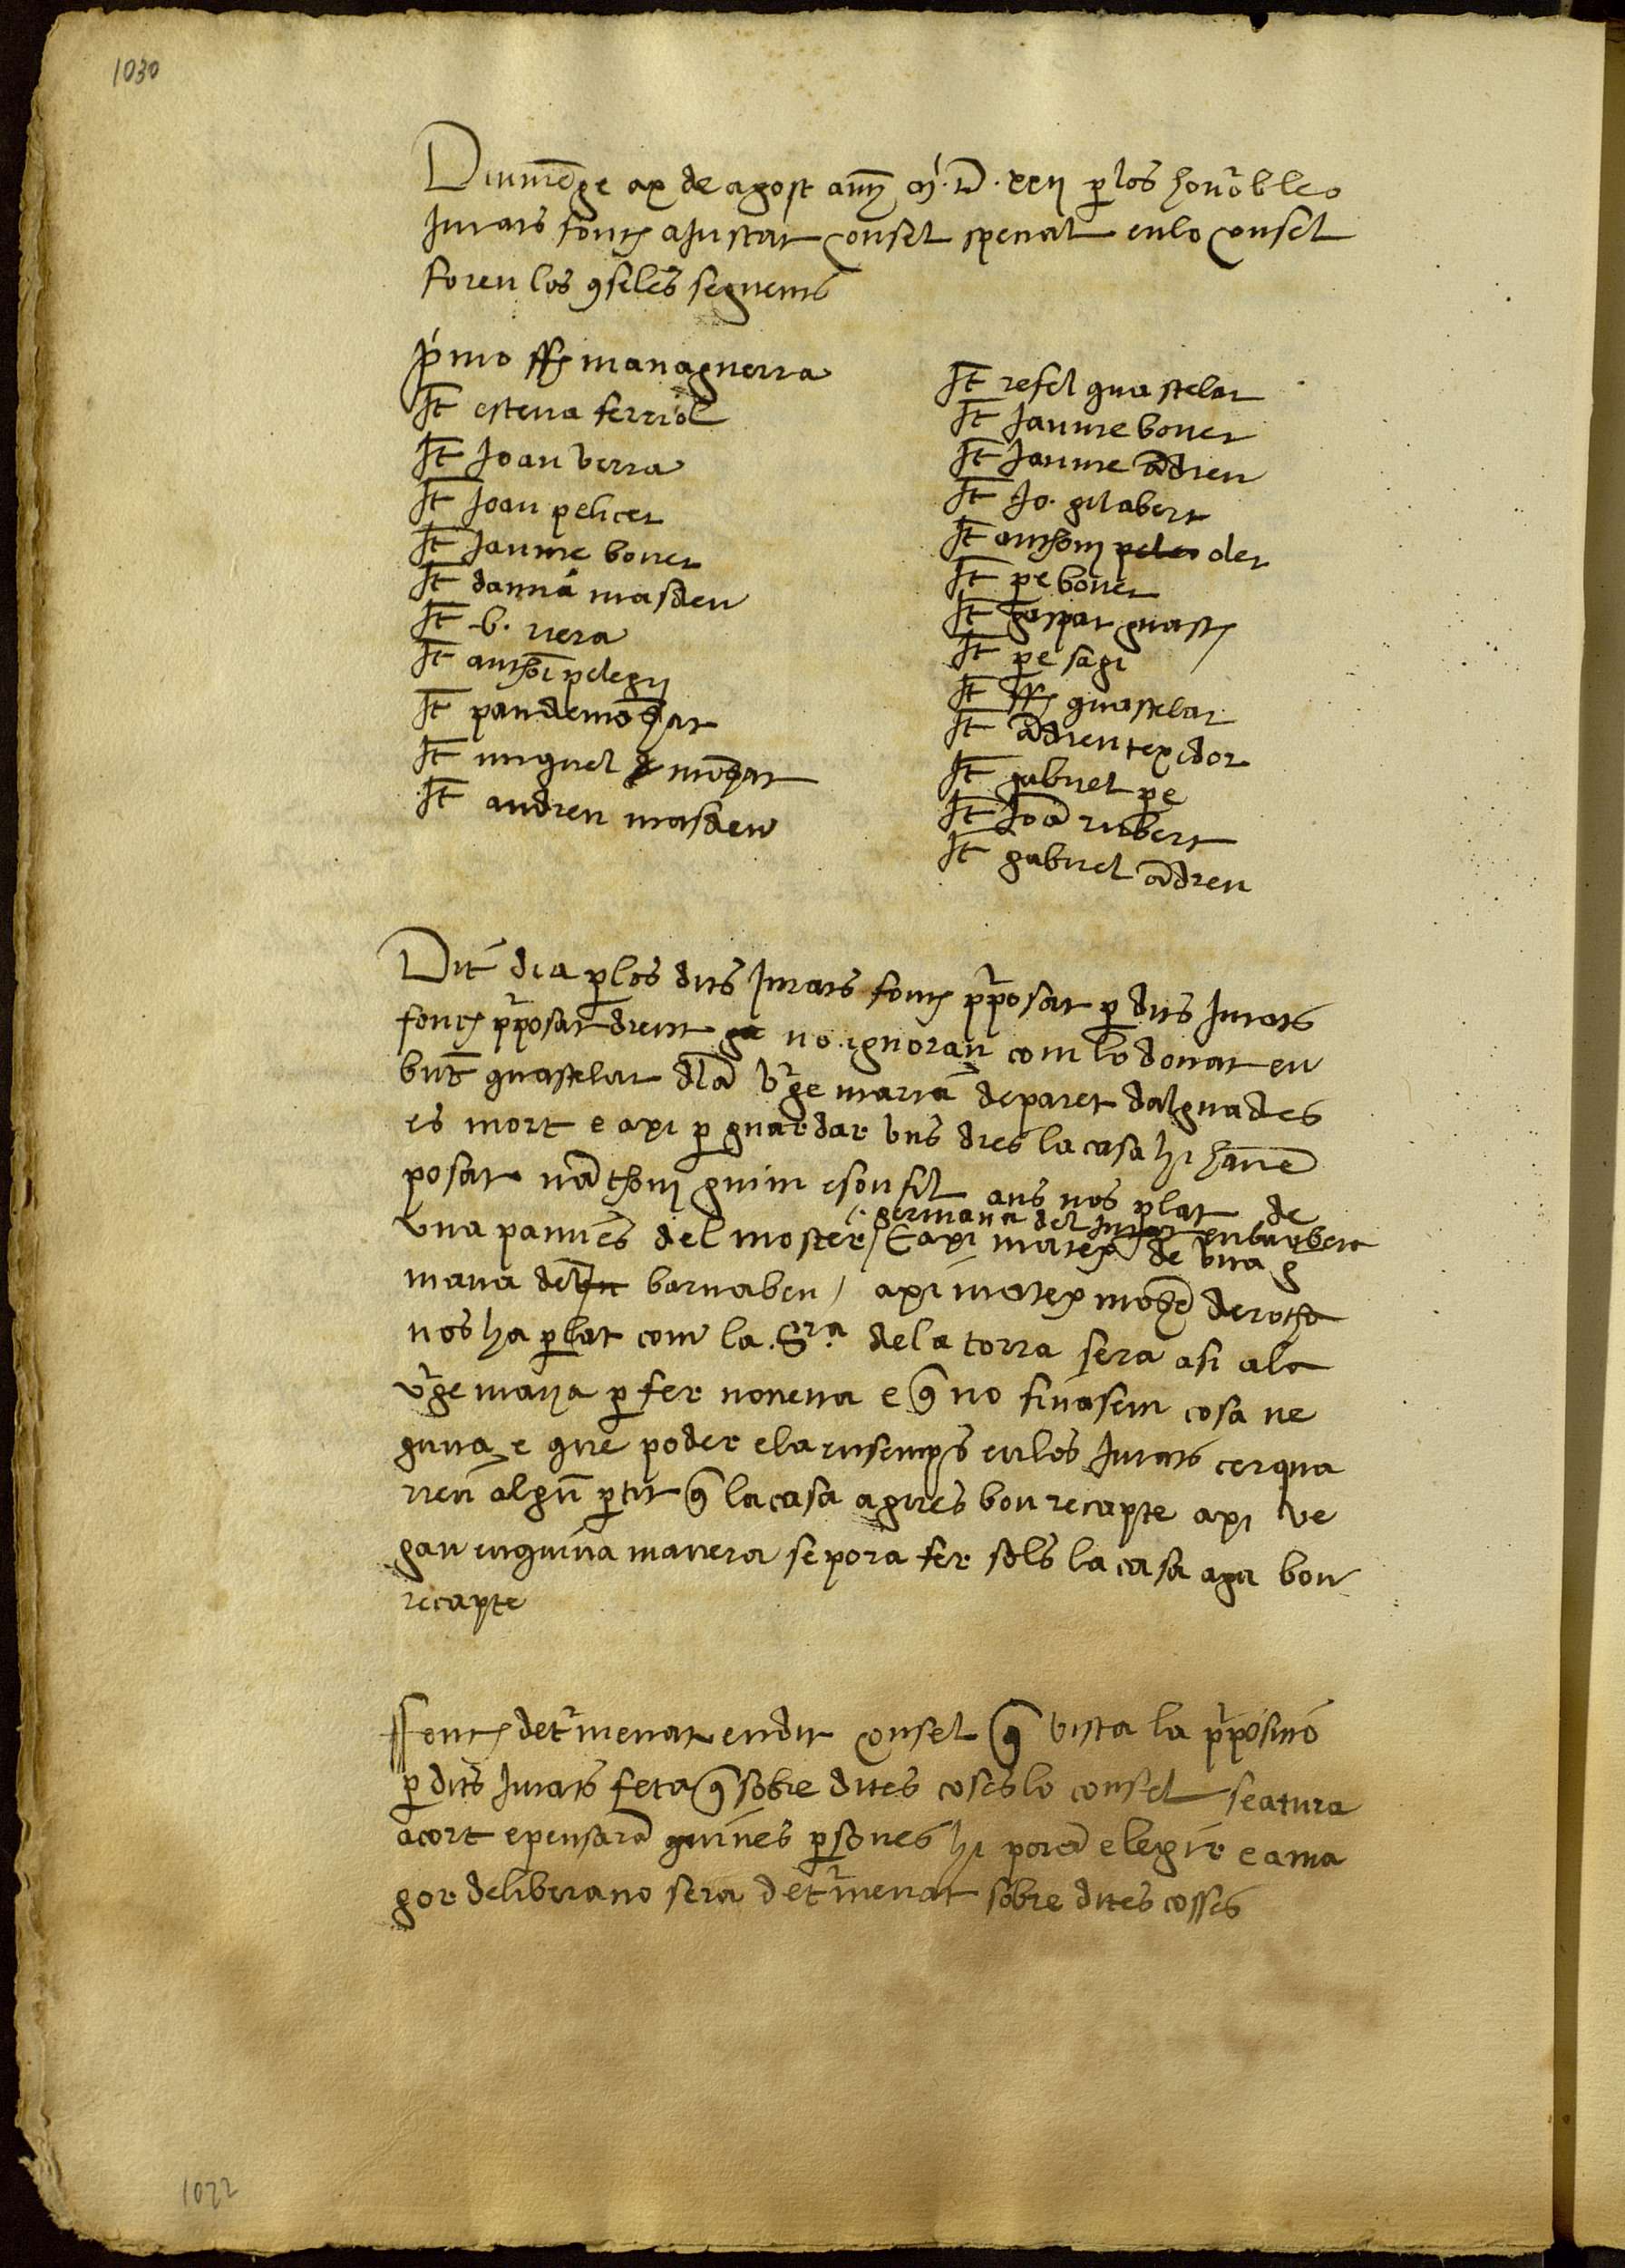 1030
Diumēge ax de agost any M.D.xxij p los honorobles
Jurats fonch aJustat consel specual en lo consel
foren los 9seles seguens
primo ffr managuerra
It esteva ferriol
It Joan verra
It Joan pelicer
It Jaume bover
It damia masdeu
It b. riera
It anthoi pelegri
It pau demōgat
It miguel mōgat
It andreu masdeu
It refel guastelar
It Jaume bover
It Jaume ādreu
It Jo. gilabert
It anthony oler
It pe bover
It gaspar guasch
It pe sagi
It ffr guastelar
It ādreu texidor
It gabriel pe
It Joā rubert
It gabriel ādreu
Dit dia p los dits Jurats fonch pposat p dits Jurats
fonch pposat dient no ignoran com lo donat en
guastelar dla vge maria de paret dalguades
es mort e axi p guardar uns dies la casa hi havē
posat nāthony guim e son fil ans nos plat de
germana del en barbera
una pames del moster / E axi matex de una g
mana del barnabeu / axi matex mogē de rocha
nos ha plat com la .Sra. de la torra sera asi a la
vge maria p fer novena e q no finasem cosa ne
guna e que poder ela ensemps en los Jurats cerqua
rien algū ptit q la casa agues bon recapte axi ve
gan en quina manera se pora fer sols la casa aga bon
recapte
Ffonch detmenat en dit consel q vista la pposicio
p dits Jurats feta q sobre dites coses lo consel se atura
acort e pensarā quines psones hi porā elegir e a ma
gor deliberano sera detmenat sobre dites cosses
1022